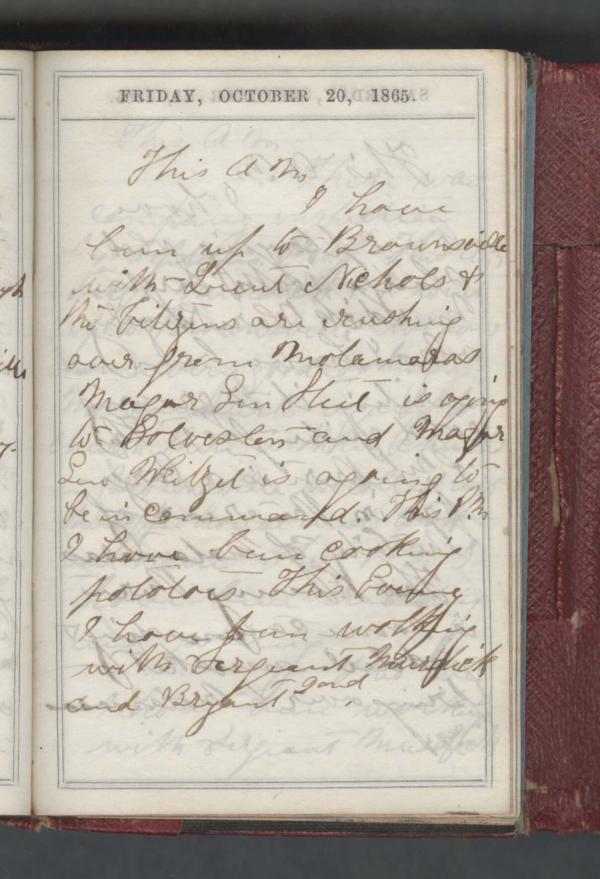 FRIDAY, OCTOBER 20, 1865.
This A M
I have
bin up to Brownsville
with Lieut Nichols &
the Citizens are rushing
over from Motamaras
Magor Gen Steel is agoing
to Golveston and Magor
Gen Witzel is agoing to
be in command. This P.M
I have bin cooking
pototoes This Evening
I have been walking
with Sergeant Murdick
and Bryant 2ond